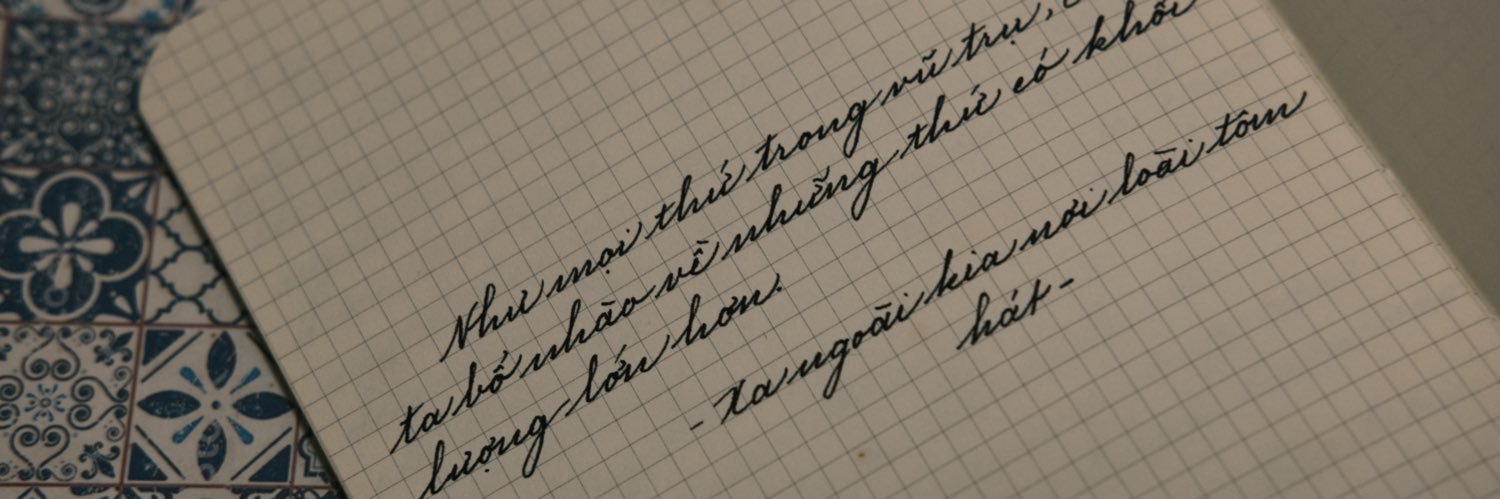 Như mọi thứ trong vũ trụ,
ta bổ nhào về những thứ có khối
lượng lớn hơn.
- Xa ngoài kia nơi loài tôm
hát -